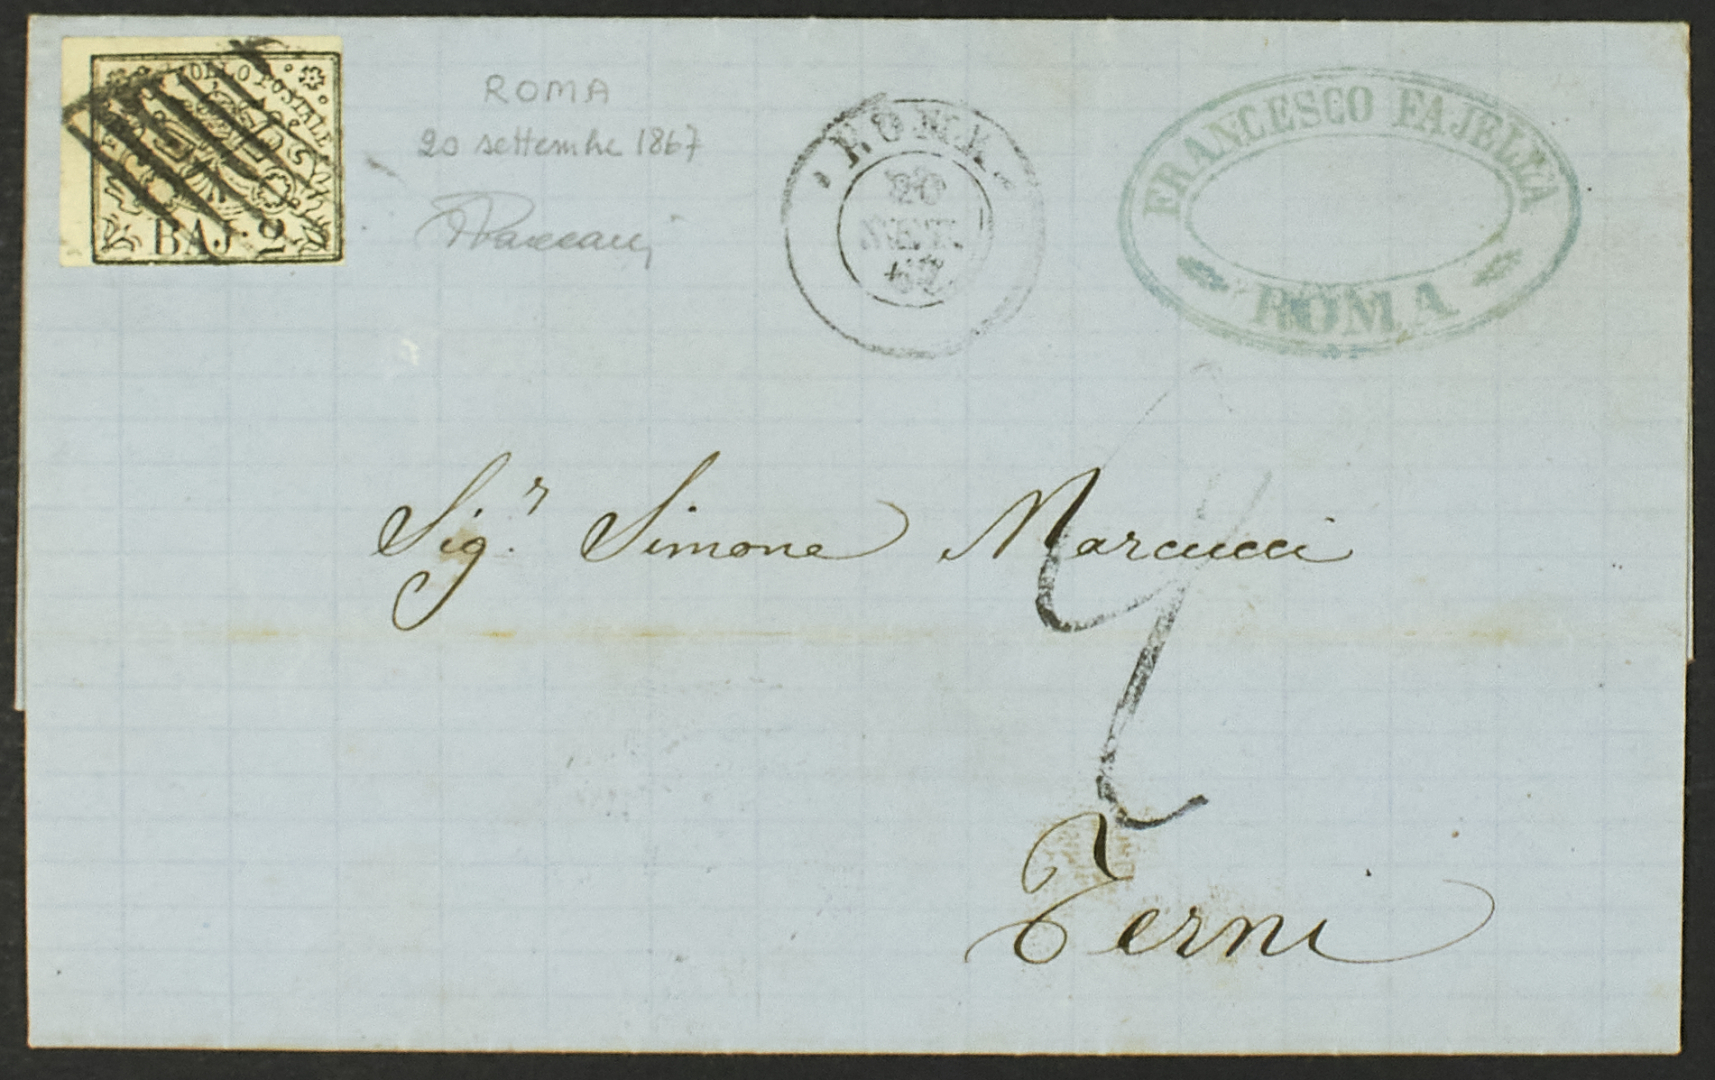 FRANCO BOLLO POSTALE
BAJ. 2
ROMA
20 settembre 1867
ROMA
20
SETT
67
FRANCESCO FAJELLA
ROMA
Sig.r Simone Marcucci
Terni